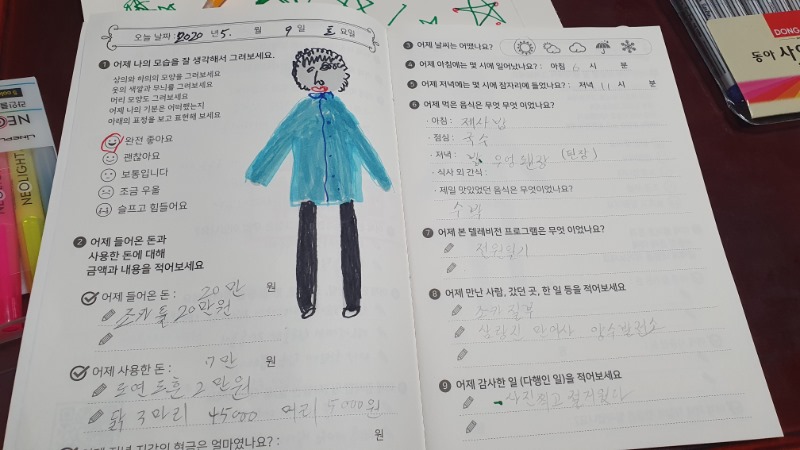 오늘 날짜 2020년 5. 월 9일 토요일
1 어제 나의 모습을 잘 생각해서 그려보세요.
상의와 하의의 모양을 그려보세요
옷의 색깔과 무늬를 그려보세요
머리 모양도 그려보세요
어제 나의 기분은 어떠했는지
아래의 표정을 보고 표현해 보세요
완전 좋아요
괜찮아요
보통입니다
조금 우울
슬프고 힘들어요
2 어제 들어온 돈과
사용한 돈에 대해
금액과 내용을 적어보세요
어제 들어온 돈 : 20만 원
조카 둘 20만원
어제 사용한 돈 : 7만 원
도연 도훈 2만원
닭 3마리 45000 머리 5000원
어제 저녁 지갑의 현금은 얼마였나요? : 원
3 어제 날씨는 어땠나요?
4 어제 아침에는 몇 시에 일어났나요? : 아침 6 시 분
5 어제 저녁에는 몇 시에 잠자리에 들었나요? : 저녁 11 시 분
6 어제 먹은 음식은 무엇 무엇 이었나요?
· 아침 : 제사밥
· 점심 : 국수
· 저녁 : 밥 우엉 된장 (된장)
· 식사 외 간식 :
· 제일 맛있었던 음식은 무엇이었나요?
수박
7 어제 본 텔레비전 프로그램은 무엇 이었나요?
전원일기
8 어제 만난 사람, 갔던 곳, 한 일 등을 적어보세요
조카 질부
삼랑진 만어사 양수발전소
9 어제 감사한 일 (다행인 일)을 적어보세요
사진찍고 즐거웠다
NEOLIGHT
DONG
동아